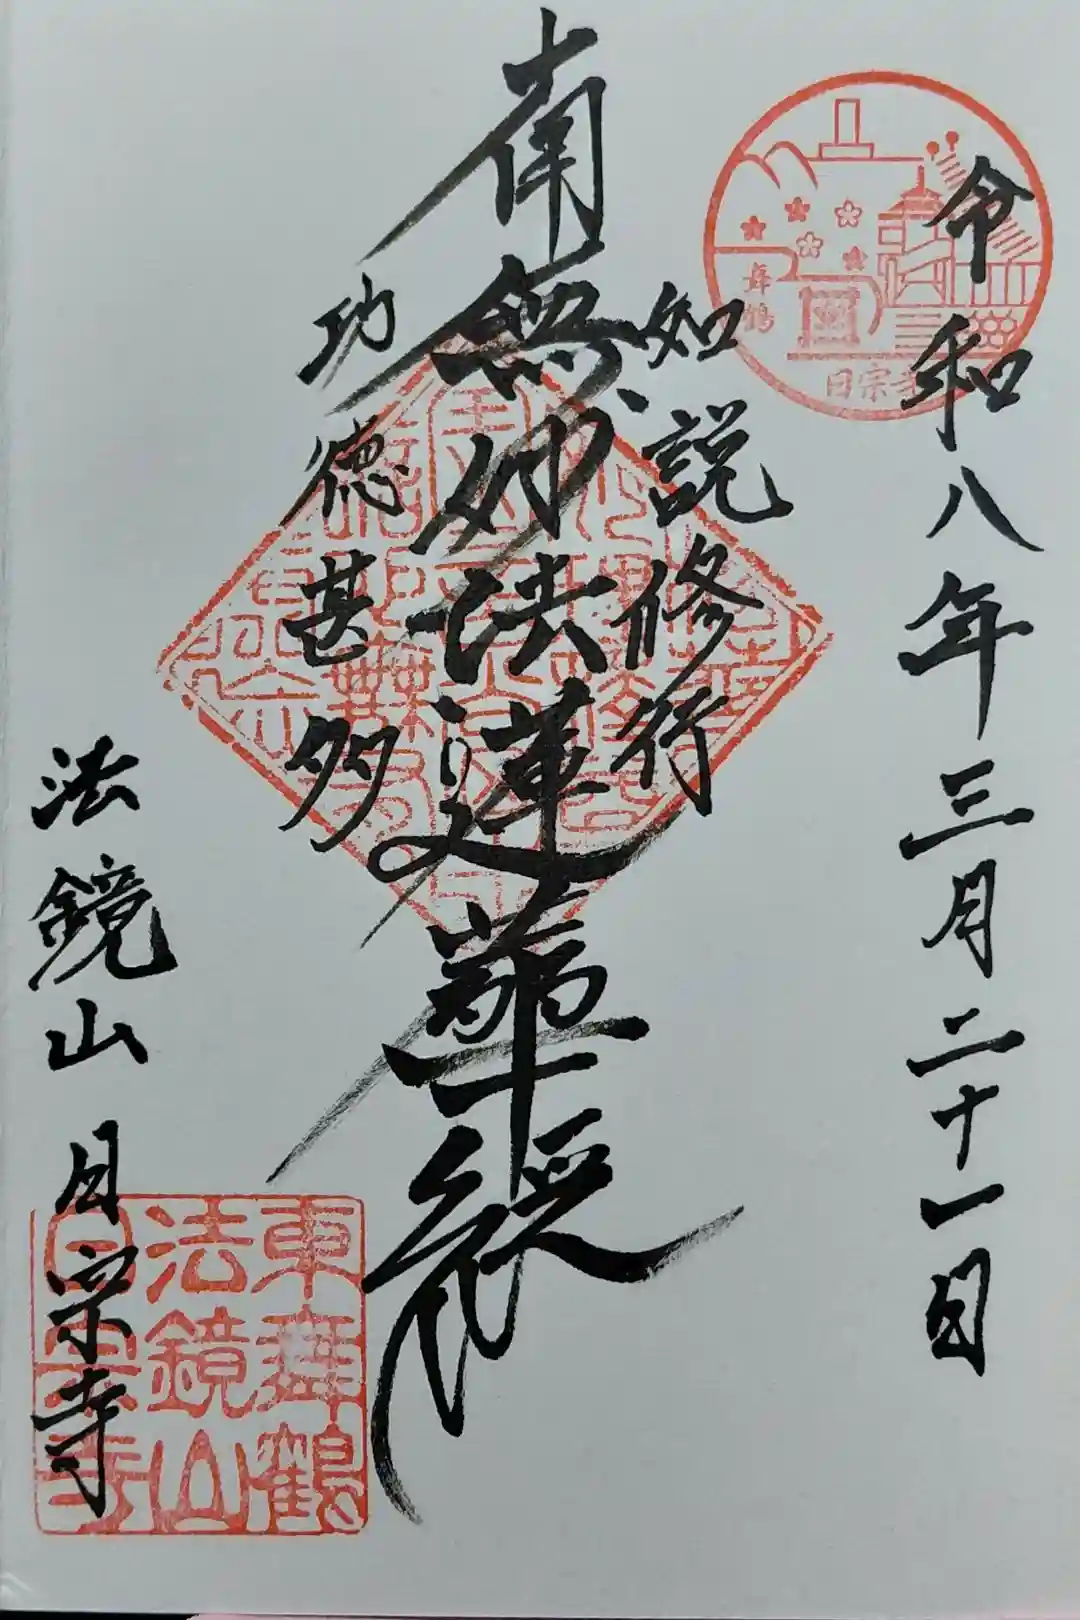 令和八年三月二十一日
舞鶴
日宗寺
如説修行
南無妙法蓮華経
功徳甚多
法鏡山 日宗寺
東舞鶴
法鏡山
日宗寺